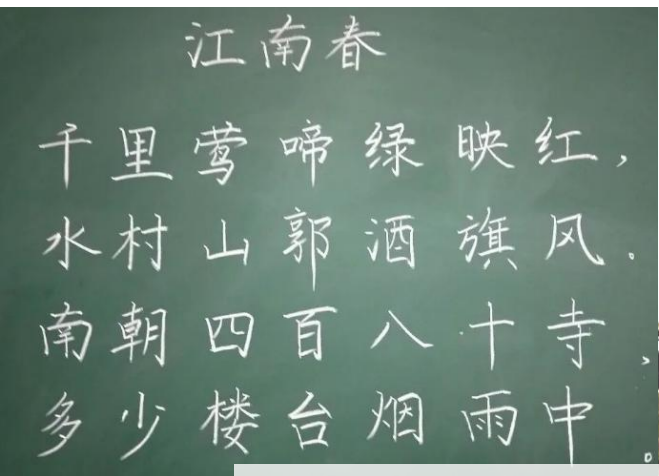 江南春
千里莺啼绿映红，
水村山郭酒旗风。
南朝四百八十寺，
多少楼台烟雨中。